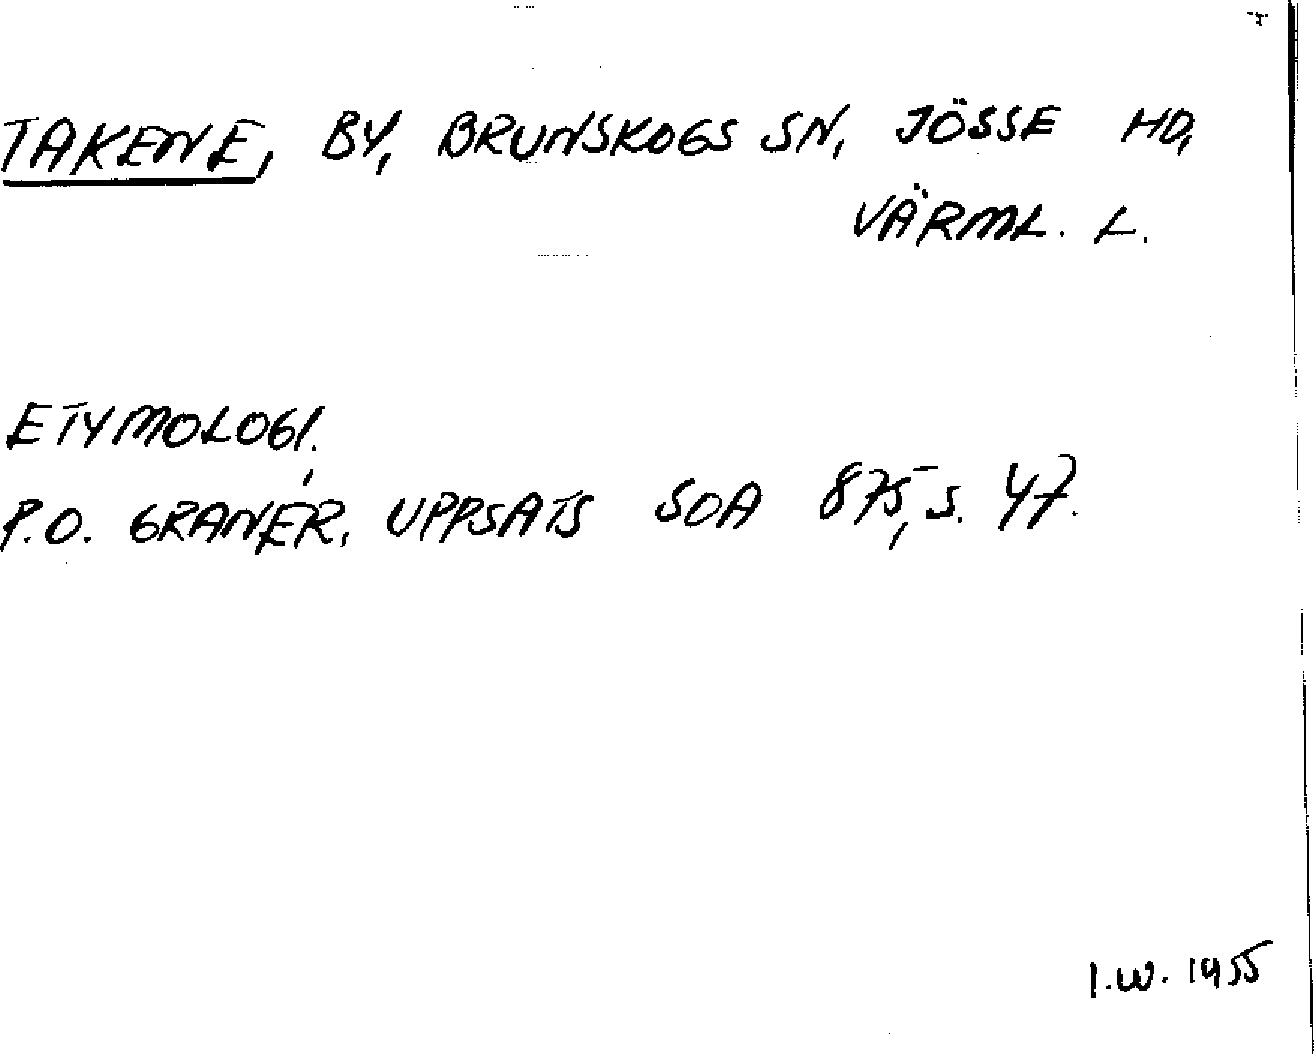 TAKENE, BY, BRUNSKOGS SN, JÖSSE HD,
VÄRML. L.
ETYMOLOGI.
P.O. GRANÉR, UPPSATS SOA 875, S. 47.
I.W. 1955